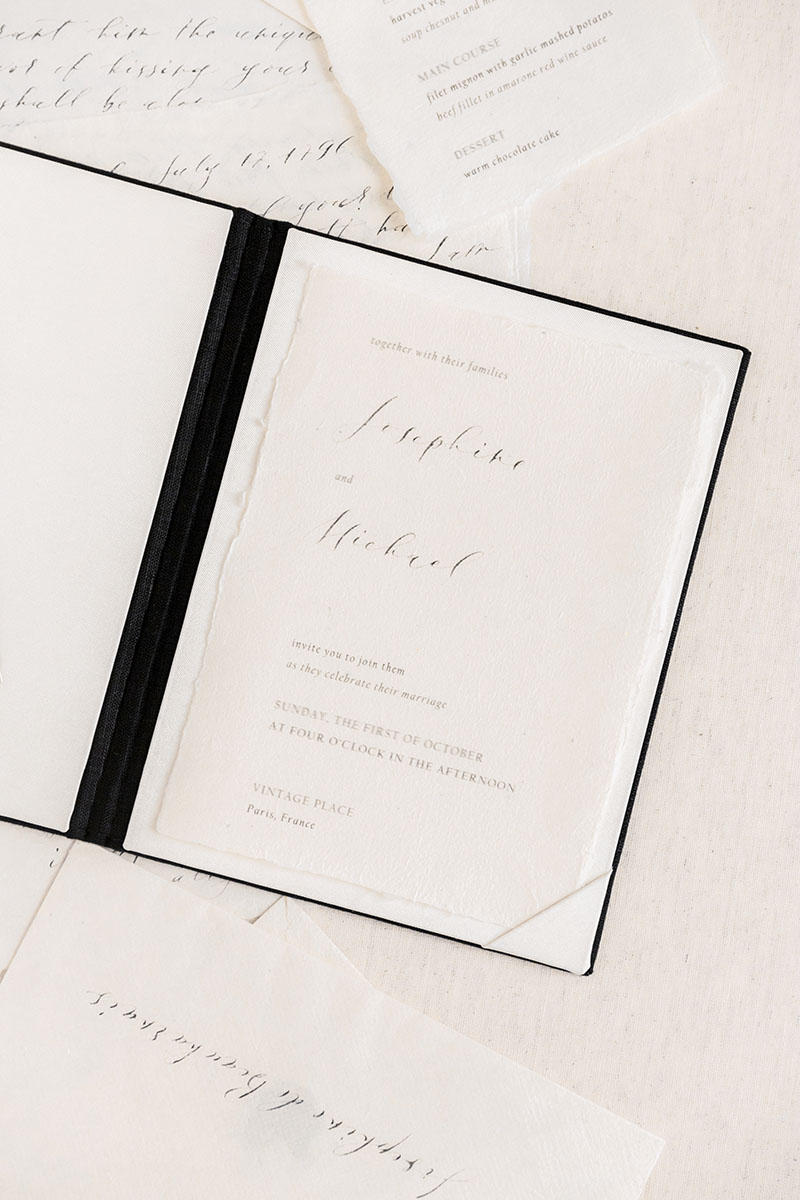 grant him the unique
of kissing your
shall be
July 17, 1796
your
I am
harvest veg
soup chesnut and
MAIN COURSE
filet mignon with garlic mashed potatos
beef fillet in amarone red wine sauce
DESSERT
warm chocolate cake
together with their families
Josephine
and
Michael
invite you to join them
as they celebrate their marriage
SUNDAY, THE FIRST OF OCTOBER
AT FOUR O'CLOCK IN THE AFTERNOON
VINTAGE PLACE
Paris, France
Josephine de Beauharnais